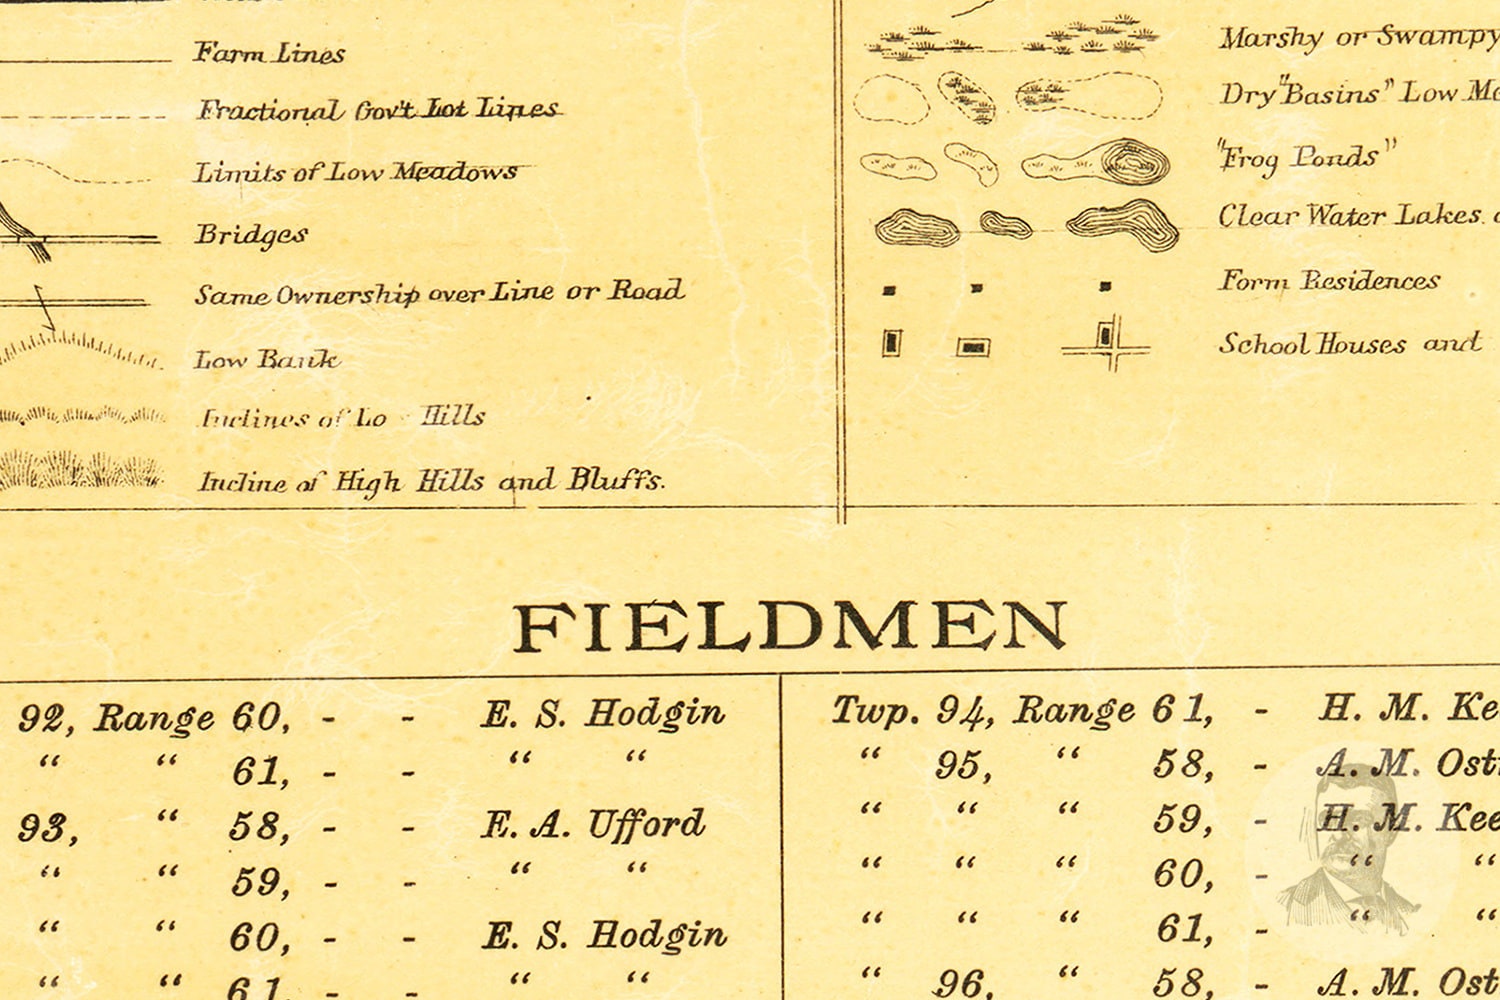 Farm Lines
Fractional Gov't Lot Lines
Limits of Low Meadows
Bridges
Same Ownership over Line or Road
Low Bank
Inclines of Lo Hills
Incline of High Hills and Bluffs.
Marshy or Swampy
Dry "Basins" Low
"Frog Ponds"
Clear Water Lakes
Form Residences
School Houses and
FIELDMEN
92, Range 60, - - E. S. Hodgin
“ “ 61, - - “ “
93, “ 58, - - E. A. Ufford
“ “ 59, - - “ “
“ “ 60, - - E. S. Hodgin
“ “ 61, - - “ “
Twp. 94, Range 61, - H. M. Ke
“ 95, “ 58, - A. M. Ost
“ “ “ 59, - H. M. Kee
“ “ “ 60, - “ “
“ “ “ 61, - “ “
“ 96, “ 58, - A. M. Ost